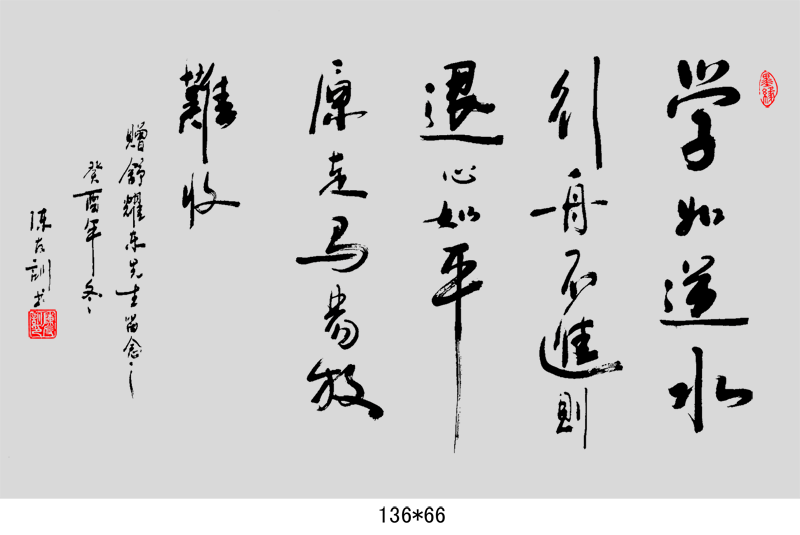 学如逆水
行舟不進則
退心如平
原走马易放
難收
赠舒耀东先生留念
癸酉年冬
陈古訓书
136*66